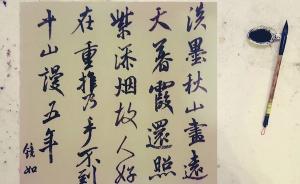 淡墨秋山畫遠
天暮霞還照
紫添烟故人好
在重携手不到
平山謾五年
鏡如